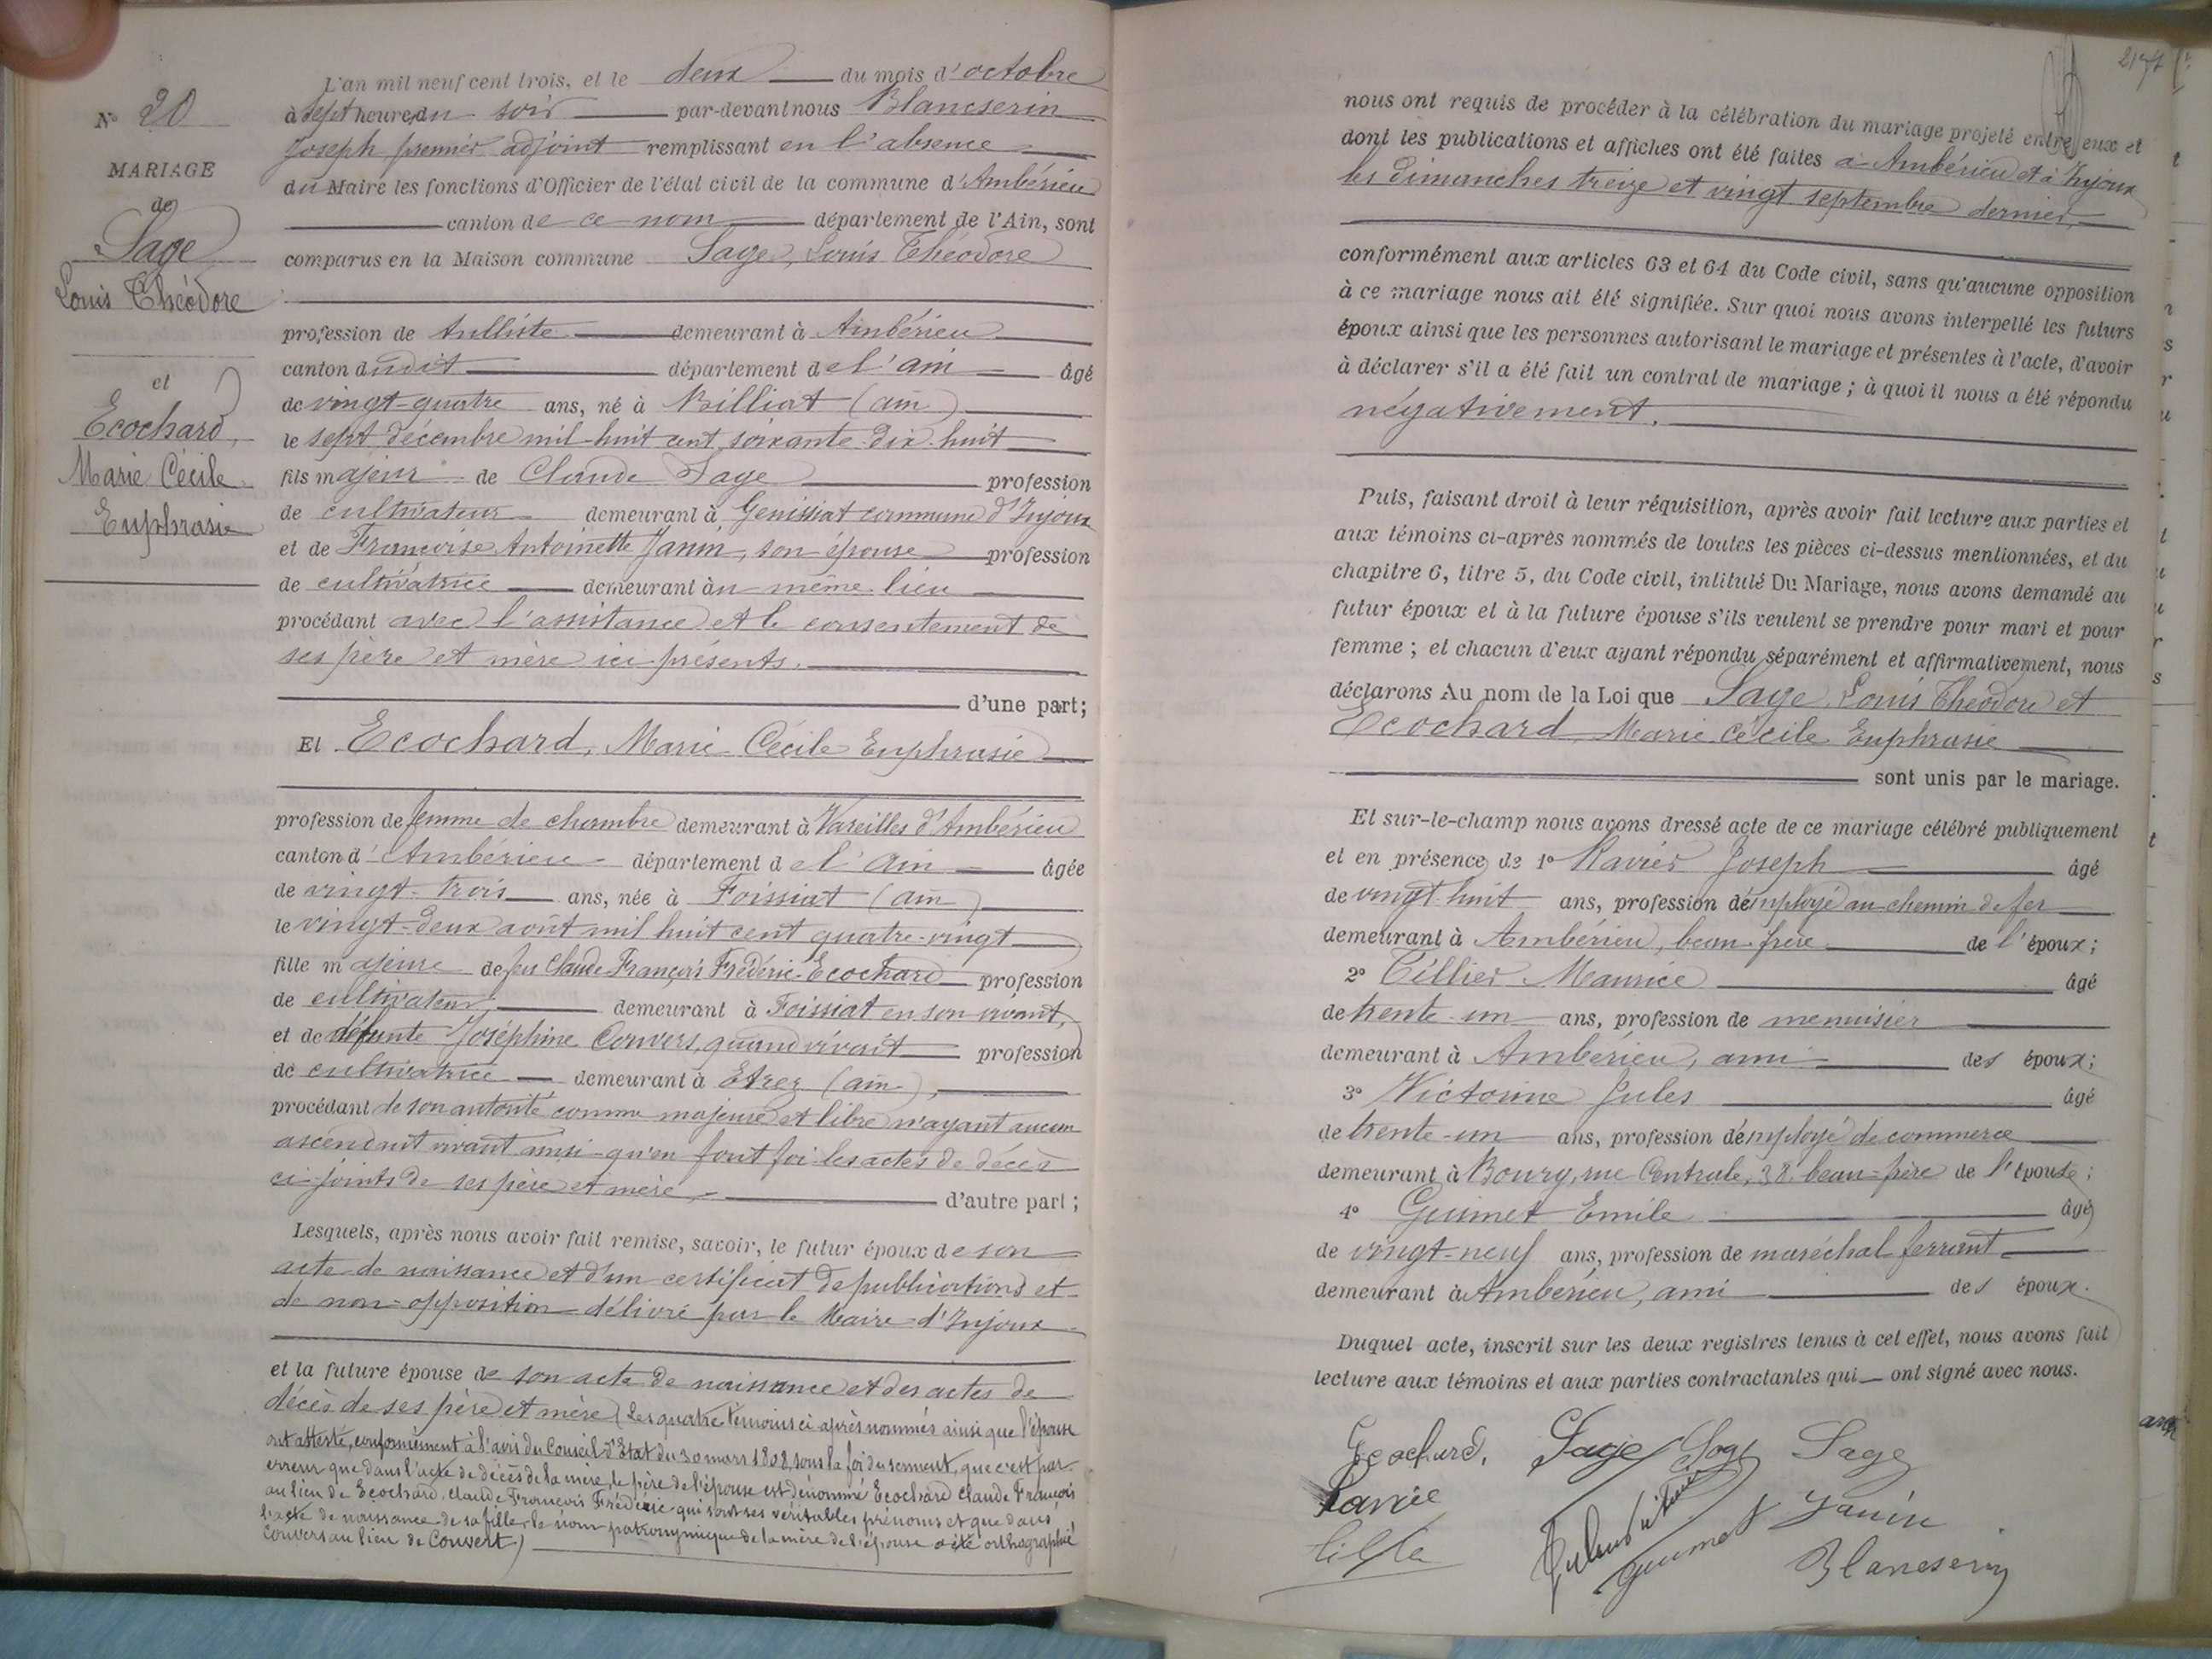 N° 20
MARIAGE
de
Sage
Louis Théodore
et
Ecochard,
Marie Cécile
Euphrasie
L'an mil neuf cent trois, et le deux du mois d'octobre
à sept heures du soir par-devant nous Blancserin
Joseph premier adjoint remplissant en l'absence
du Maire les fonctions d'Officier de l'état civil de la commune d'Ambérieu
canton de ce nom département de l'Ain, sont
comparus en la Maison commune Sage, Louis Théodore
profession de tulliste demeurant à Ambérieu
canton dudit département de l'Ain âgé
de vingt-quatre ans, né à Billiat (Ain)
le sept décembre mil-huit cent soixante-dix-huit
fils majeur de Claude Sage profession
de cultivateur demeurant à Genissiat commune d'Injoux
et de Françoise Antoinette Janin, son épouse profession
de cultivatrice demeurant au même lieu
procédant avec l'assistance et le consentement de
ses père et mère ici présents.
d'une part;
Et Ecochard, Marie Cécile Euphrasie
profession de femme de chambre demeurant à Vareilles d'Ambérieu
canton d'Ambérieu département de l'Ain âgée
de vingt-trois ans, née à Foissiat (Ain)
le vingt-deux août mil huit cent quatre-vingt
fille majeure de feu Claude François Frédéric Ecochard profession
de cultivateur demeurant à Foissiat en son vivant,
et de défunte Joséphine Convers, quand vivait profession
de cultivatrice demeurant à Etrez (Ain),
procédant de son autorité comme majeure et libre n'ayant aucun
ascendant vivant ainsi qu'en font foi les actes de décès
ci-joints de ses père et mère, d'autre part;
Lesquels, après nous avoir fait remise, savoir, le futur époux de son
acte de naissance et d'un certificat de publications et
de non-opposition délivré par le Maire d'Injoux
et la future épouse de son acte de naissance et des actes de
décès de ses père et mère (Les quatre témoins ci après nommés ainsi que l'épouse
ont attesté, conformément à l'avis du Conseil d'Etat du 30 mars 1808, sous la foi du serment, que c'est par
erreur que dans l'acte de décès de la mère, le père de l'épouse est dénommé Ecochard Claude François
au lieu de Ecochard, Claude François Frédéric qui sont ses véritables prénoms et que dans
l'acte de naissance de sa fille, le nom patronymique de la mère de l'épouse a été orthographié
Convers au lieu de Convert)
nous ont requis de procéder à la célébration du mariage projeté entre eux et
dont les publications et affiches ont été faites à Ambérieu et à Injoux
les dimanches treize et vingt septembre dernier,
conformément aux articles 63 et 64 du Code civil, sans qu'aucune opposition
à ce mariage nous ait été signifiée. Sur quoi nous avons interpellé les futurs
époux ainsi que les personnes autorisant le mariage et présentes à l'acte, d'avoir
à déclarer s'il a été fait un contrat de mariage; à quoi il nous a été répondu
négativement.
Puis, faisant droit à leur réquisition, après avoir fait lecture aux parties et
aux témoins ci-après nommés de toutes les pièces ci-dessus mentionnées, et du
chapitre 6, titre 5, du Code civil, intitulé Du Mariage, nous avons demandé au
futur époux et à la future épouse s'ils veulent se prendre pour mari et pour
femme; et chacun d'eux ayant répondu séparément et affirmativement, nous
déclarons Au nom de la Loi que Sage Louis Théodore et
Ecochard Marie Cécile Euphrasie
sont unis par le mariage.
Et sur-le-champ nous avons dressé acte de ce mariage célébré publiquement
et en présence de 1° Ravier Joseph âgé
de vingt huit ans, profession d'employé au chemin de fer
demeurant à Ambérieu, beau-frère de l'époux;
2° Tillier Maurice âgé
de trente-un ans, profession de menuisier
demeurant à Ambérieu, ami des époux;
3° Victorine Jules âgé
de trente-un ans, profession d'employé de commerce
demeurant à Bourg, rue Centrale, 38, beau-père de l'épouse;
4° Guimet Emile âgé
de vingt-neuf ans, profession de maréchal ferrant
demeurant à Ambérieu, ami des époux.
Duquel acte, inscrit sur les deux registres tenus à cet effet, nous avons fait
lecture aux témoins et aux parties contractantes qui ont signé avec nous.
Ecochard, Sage Sage Sage
Janin
Guimet
Blancserin